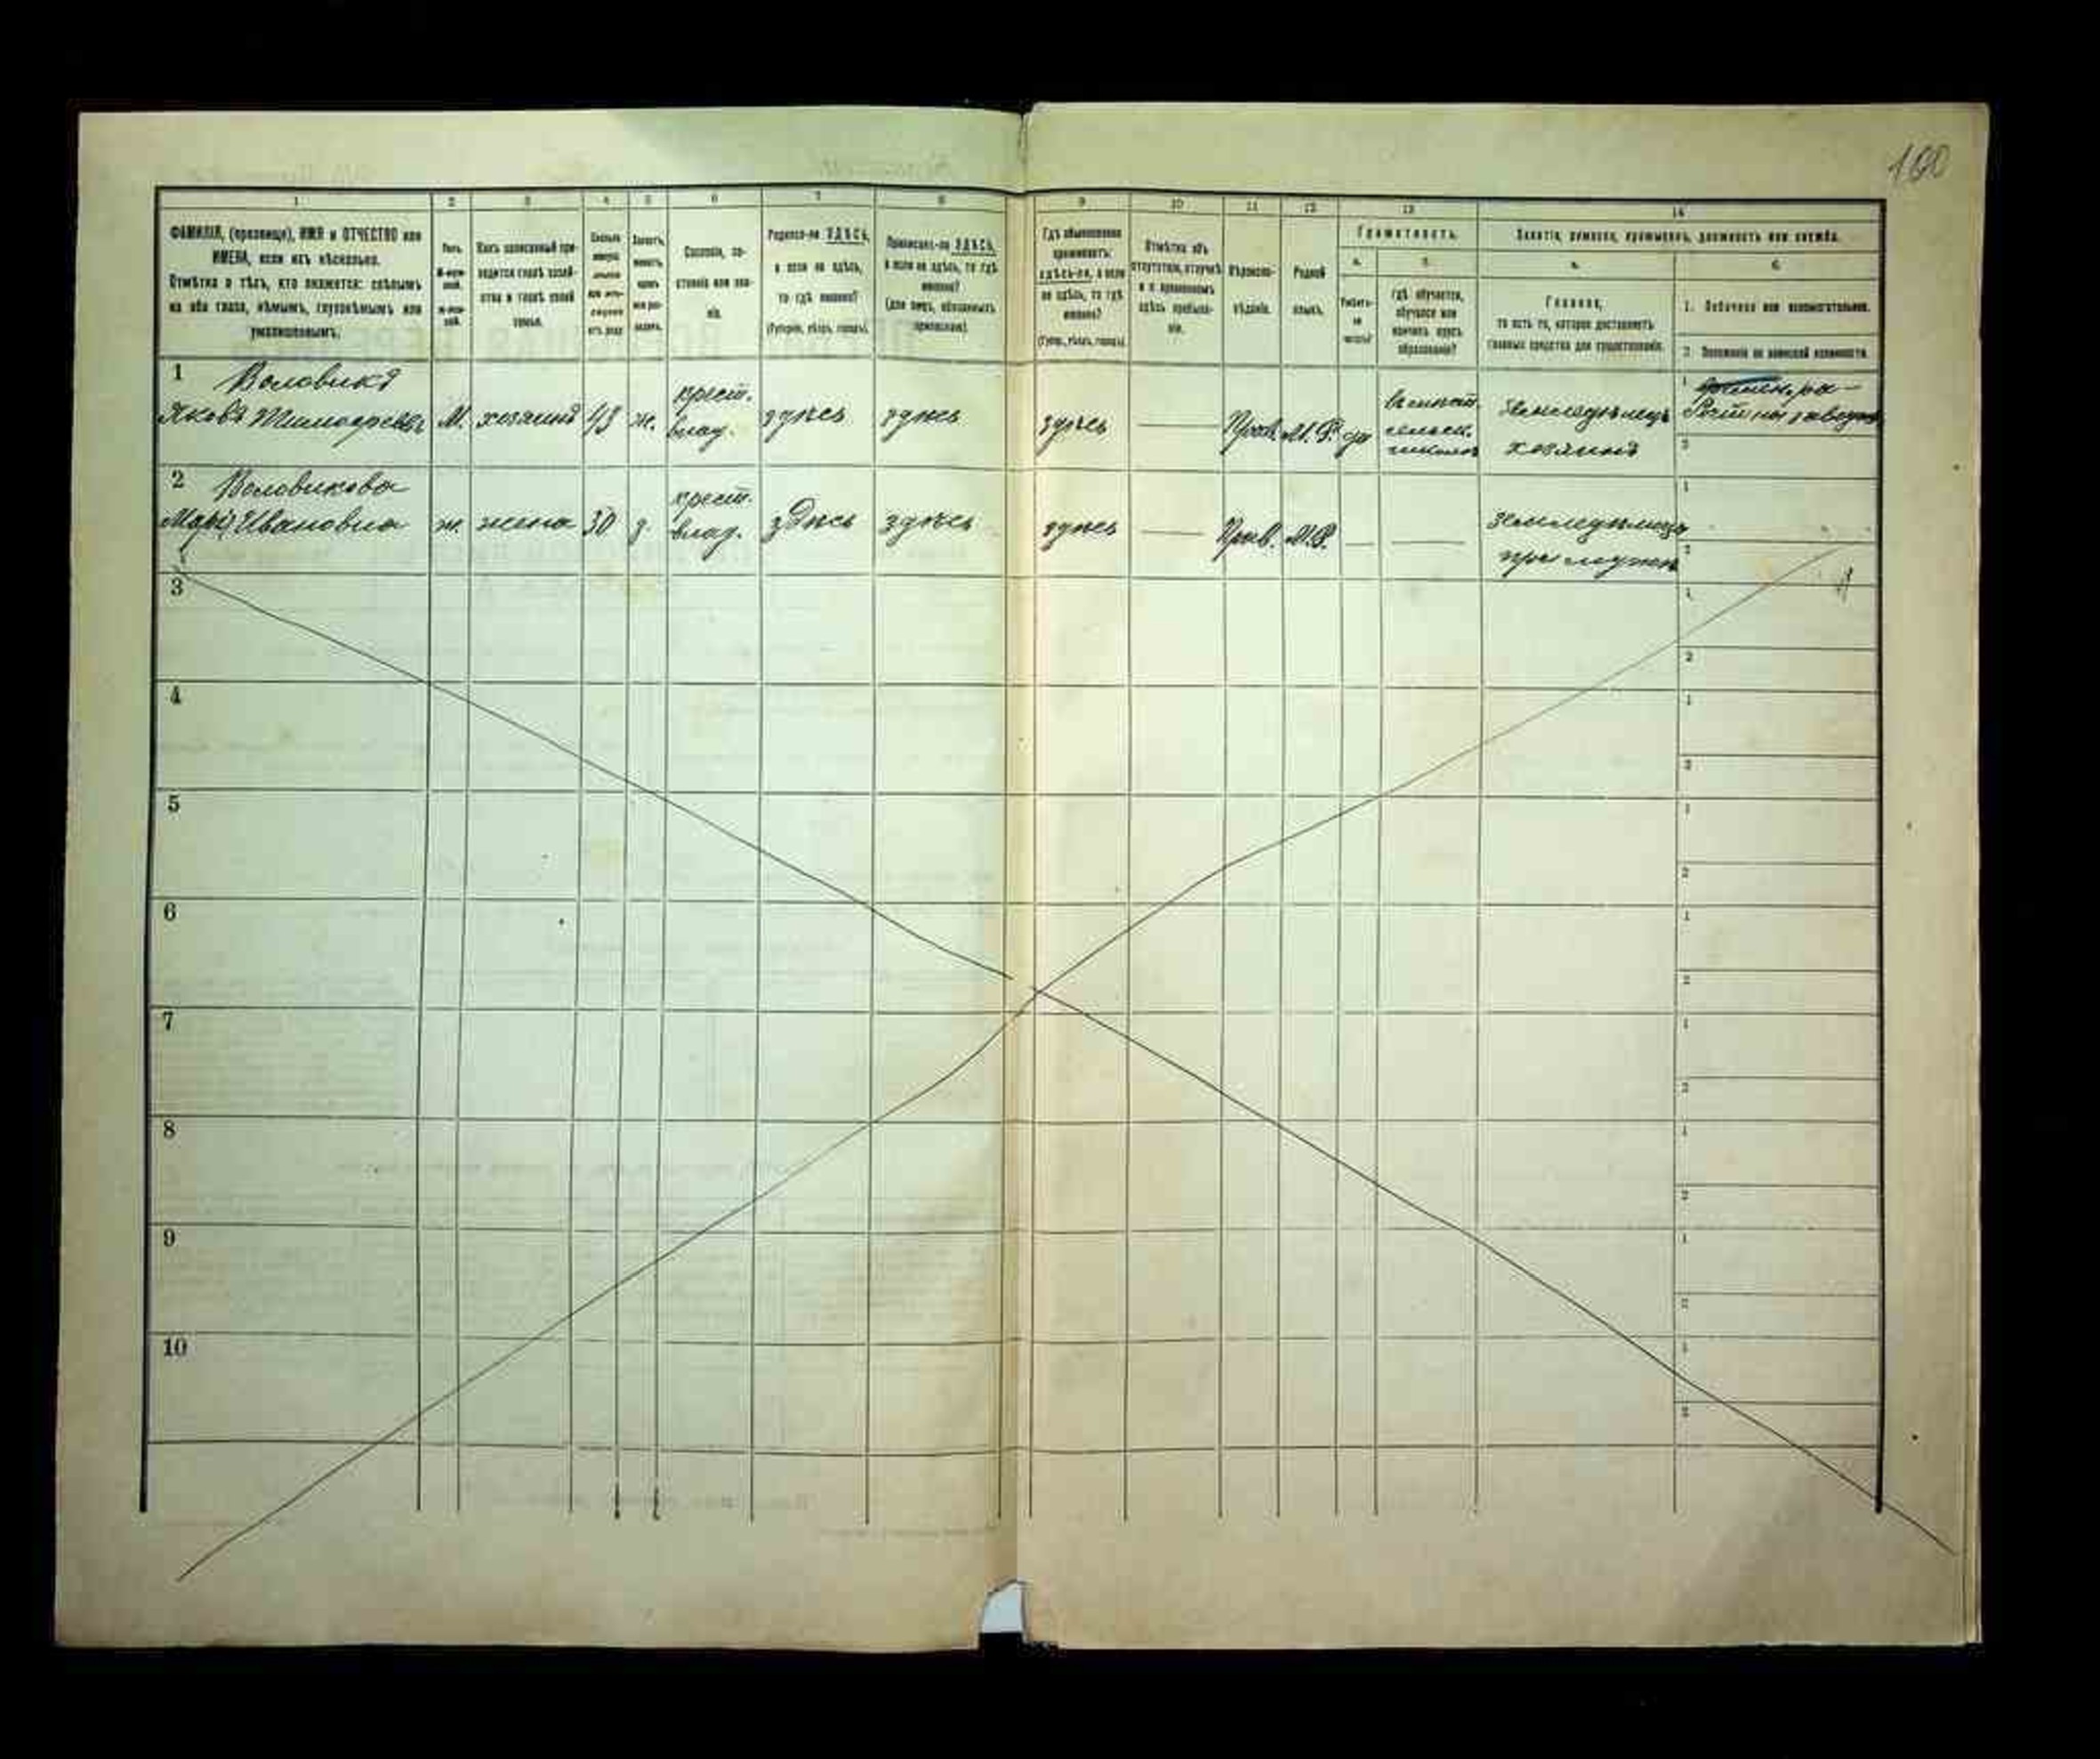 160
1 2 3 4 5 6 7 8 9 10 11 12 13 14
ФАМИЛІЯ, (прозвище), ИМЯ и ОТЧЕСТВО или
ИМЕНА, если ихъ нѣсколько.
Отмѣтка о тѣхъ, кто окажется: слѣпымъ
на оба глаза, нѣмымъ, глухонѣмымъ или
умалишеннымъ.
Полъ.
Какъ записанный при-
ходится главѣ хозяй-
ства и главѣ своей
семьи.
Сословіе, со-
стояніе или зва-
ніе.
Родился-ли ЗДѢСЬ,
а если не здѣсь,
то гдѣ именно?
(Губернія, уѣздъ, городъ).
Приписанъ-ли ЗДѢСЬ,
а если не здѣсь, то гдѣ
именно?
(для лицъ, обязанныхъ
припискою).
Гдѣ обыкновенно
проживаетъ:
здѣсь-ли, а если
не здѣсь, то гдѣ
именно?
(Губер., уѣздъ, городъ).
Отмѣтка объ
отсутствіи, отлучкѣ
и о временномъ
здѣсь пребыва-
ніи.
Вѣроиспо-
вѣданіе.
Родной
языкъ.
Грамотность.
а.
Умѣетъ-
ли
читать?
б.
гдѣ обучается,
обучался или
кончилъ курсъ
образованія?
Занятіе, ремесло, промыселъ, должность или служба.
а.
Главное,
то есть то, которое доставляетъ
главныя средства для существованія.
б.
1. Побочное или вспомогательное.
2. Положеніе по воинской повинности.
1 Воловикъ
Яковъ Тимофеевъ М. хозяинъ 43 ж. крест. влад. здѣсь здѣсь здѣсь — Прав. М.Р. да
земледѣлецъ
хозяинъ
2 Воловикова
Марія Ивановна ж. жена 30 з. крест. влад. здѣсь здѣсь здѣсь — Прав. М.Р. — —
при мужѣ
3
4
5
6
7
8
9
10